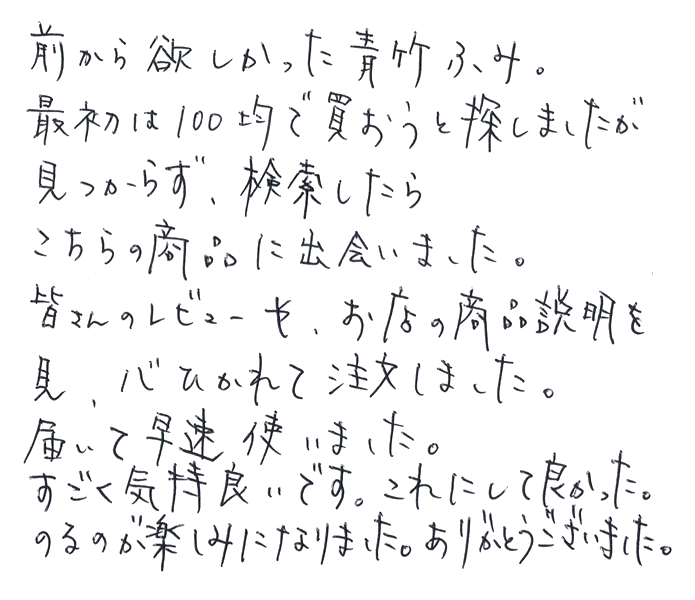 前から欲しかった青竹ふみ。
最初は100均で買おうと探しましたが
見つからず、検索したら
こちらの商品に出会いました。
皆さんのレビューや、お店の商品説明を
見、心ひかれて注文しました。
届いて早速使いました。
すごく気持良いです。これにして良かった。
のるのが楽しみになりました。ありがとうございました。